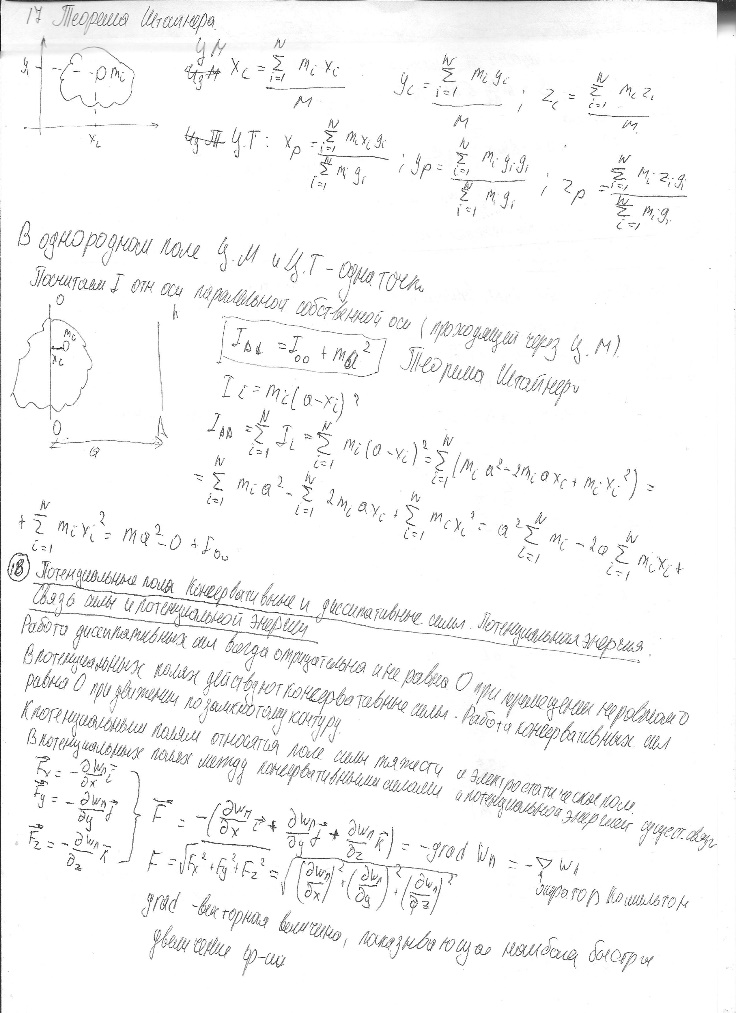 17 Теорема Штайнера.
y_i m_i x_i
Ц М x_c = \frac{\sum_{i=1}^{N} m_i x_i}{M} y_c = \frac{\sum_{i=1}^{N} m_i y_i}{M} ; z_c = \frac{\sum_{i=1}^{N} m_i z_i}{M}
Ц.Т: x_p = \frac{\sum_{i=1}^{N} m_i x_i g_i}{\sum_{i=1}^{N} m_i g_i} ; y_p = \frac{\sum_{i=1}^{N} m_i y_i g_i}{\sum_{i=1}^{N} m_i g_i} ; z_p = \frac{\sum_{i=1}^{N} m_i z_i g_i}{\sum_{i=1}^{N} m_i g_i}
В однородном поле Ц.М и Ц.Т - одна точка
Посчитаем I отн оси паралельной собственной оси (проходящей через Ц.М).
O m_i x_i O a A
I_{AA} = I_{oo} + ma^2 Теорема Штайнера
I_i = m_i(a-x_i)^2
I_{AA} = \sum_{i=1}^{N} I_i = \sum_{i=1}^{N} m_i(a-x_i)^2 = \sum_{i=1}^{N} (m_i a^2 - 2m_i a x_i + m_i x_i^2) =
= \sum_{i=1}^{N} m_i a^2 - \sum_{i=1}^{N} 2m_i a x_i + \sum_{i=1}^{N} m_i x_i^2 = a^2 \sum_{i=1}^{N} m_i - 2a \sum_{i=1}^{N} m_i x_i +
+ \sum_{i=1}^{N} m_i x_i^2 = ma^2 - 0 + I_{oo}
18 Потенциальные поля. Консервативные и диссипативные силы. Потенциальная энергия.
Связь силы и потенциальной энергии
Работа диссипативных сил всегда отрицательна и не равна 0 при перемещении не равном 0
В потенциальных полях действуют консервативные силы. Работа консервативных сил
равна 0 при движении по замкнутому контуру.
К потенциальным полям относятся поле силы тяжести и электростатическое поле
В потенциальных полях между консервативными силами и потенциальной энергией существ. связь
\vec{F}_x = -\frac{∂w_п}{∂x}\vec{i}
\vec{F}_y = -\frac{∂w_п}{∂y}\vec{j}
\vec{F}_z = -\frac{∂w_п}{∂z}\vec{k}
\vec{F} = -(\frac{∂w_п}{∂x}\vec{i} + \frac{∂w_п}{∂y}\vec{j} + \frac{∂w_п}{∂z}\vec{k}) = -grad w_п = -∇w_п
F = \sqrt{F_x^2 + F_y^2 + F_z^2} = \sqrt{(\frac{∂w_п}{∂x})^2 + (\frac{∂w_п}{∂y})^2 + (\frac{∂w_п}{∂z})^2}
оператор Гамильтон
grad - векторная величина, показывающая наиболе быстрое
увеличение ф-ии